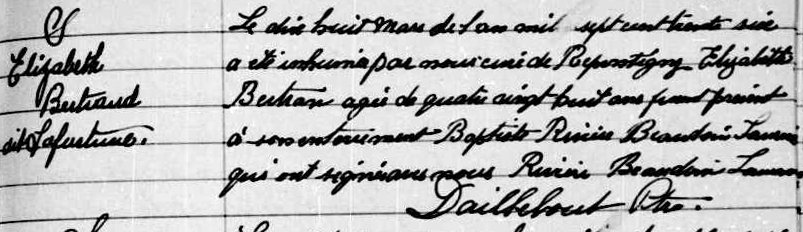 S
Elizabeth
Bertrand
dit Lafortune.
Le dix huit Mars de l an mil sept cent trente six
a été inhumé par nous curé de Repentigny Elizabeth
Bertran agée de quatre vingt huit ans furent présent
à son enterrement Baptiste Rivière Beaudoin
qui ont signé avec nous Rivière Beaudoin
Dailleboust Ptre.